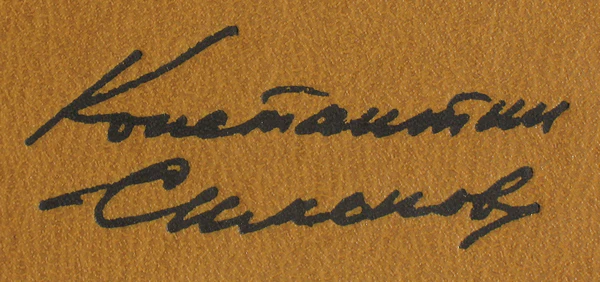 Константин
Симонов